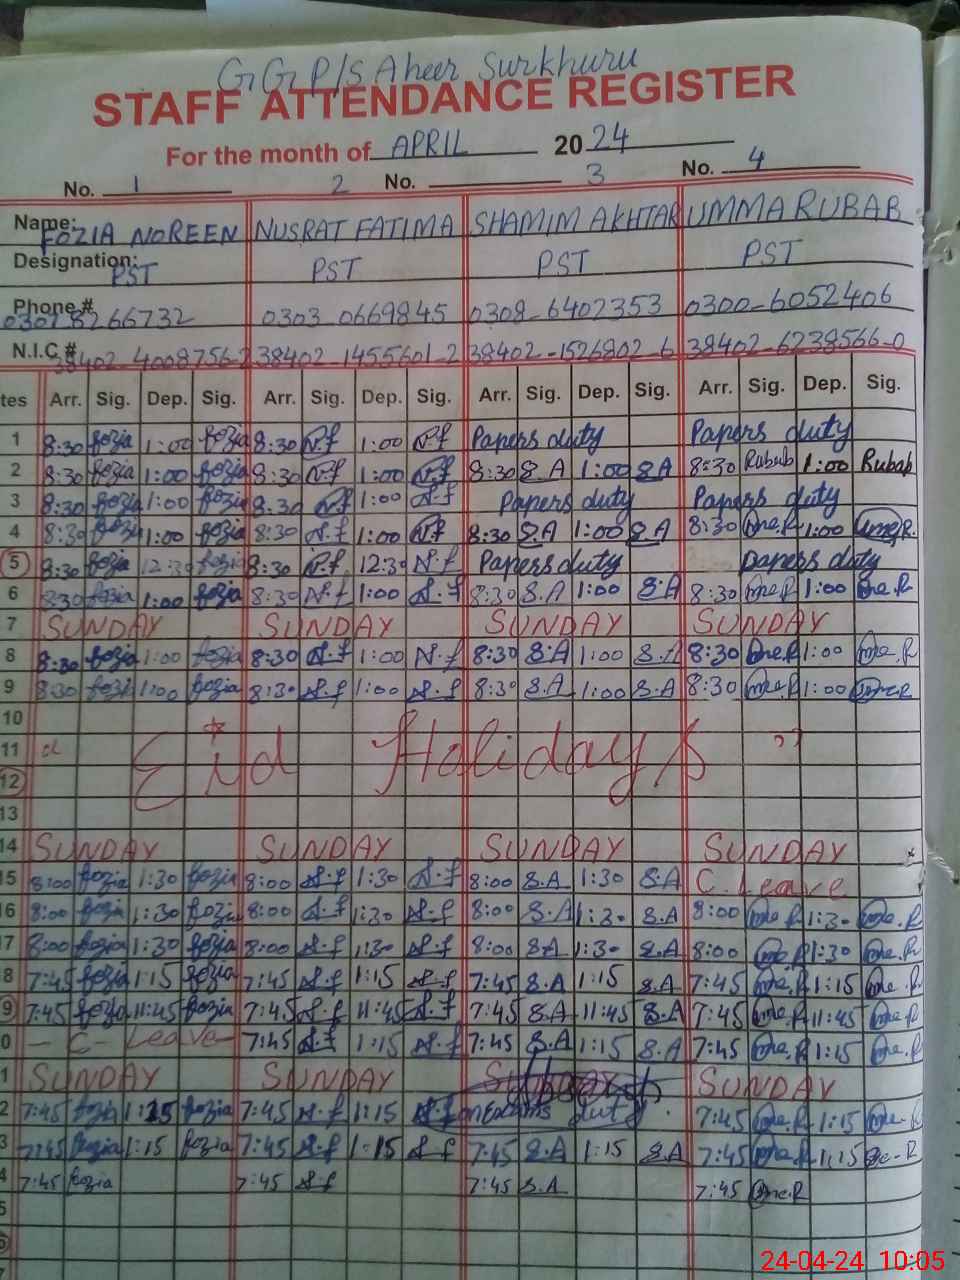 GGP/S Aheer Surkhuru
STAFF ATTENDANCE REGISTER
For the month of APRIL 2024
No. 1 2 No. 3 No. 4
Name: FOZIA NOREEN NUSRAT FATIMA SHAMIM AKHTAR UMMA RUBAB
Designation: PST PST PST PST
Phone # 0307 8266732 0303 0669845 0308-6402353 0300-6052406
N.I.C # 38402-4008756-2 38402-1455601-2 38402-1526802-6 38402-6238566-0
tes Arr. Sig. Dep. Sig. Arr. Sig. Dep. Sig. Arr. Sig. Dep. Sig. Arr. Sig. Dep. Sig.
1 8:30 fozia 1:00 fozia 8:30 N.f 1:00 N.f Papers duty Papers duty
2 8:30 fozia 1:00 fozia 8:30 N.f 1:00 N.f 8:30 S.A 1:00 S.A 8:30 Rubab 1:00 Rubab
3 8:30 fozia 1:00 fozia 8:30 N.f 1:00 N.f Papers duty Papers duty
4 8:30 fozia 1:00 fozia 8:30 N.f 1:00 N.f 8:30 S.A 1:00 S.A 8:30 me.R 1:00 ume.R.
5 8:30 fozia 12:30 fozia 8:30 N.f 12:30 N.f Papers duty papers duty
6 8:30 fozia 1:00 fozia 8:30 N.f 1:00 N.f 8:30 S.A 1:00 S.A 8:30 me.R 1:00 me.R
7 SUNDAY SUNDAY SUNDAY SUNDAY
8 8:30 fozia 1:00 fozia 8:30 N.f 1:00 N.f 8:30 S.A 1:00 S.A 8:30 me.R 1:00 me.R
9 8:30 fozia 1:00 fozia 8:30 N.f 1:00 N.f 8:30 S.A 1:00 S.A 8:30 me.R 1:00 me.R
10
11 " Eid Holidays "
12
13
14 SUNDAY SUNDAY SUNDAY SUNDAY
15 8:00 fozia 1:30 fozia 8:00 N.f 1:30 N.f 8:00 S.A 1:30 S.A C. Leave
16 8:00 fozia 1:30 fozia 8:00 N.f 1:30 N.f 8:00 S.A 1:30 S.A 8:00 me.R 1:30 me.R
17 8:00 fozia 1:30 fozia 8:00 N.f 1:30 N.f 8:00 S.A 1:30 S.A 8:00 me.R 1:30 me.R
8 7:45 fozia 1:15 fozia 7:45 N.f 1:15 N.f 7:45 S.A 1:15 S.A 7:45 me.R 1:15 me.R
9 7:45 fozia 11:45 fozia 7:45 N.f 11:45 N.f 7:45 S.A 11:45 S.A 7:45 me.R 11:45 me.R
0 - C- Leave 7:45 N.f 1:15 N.f 7:45 S.A 1:15 S.A 7:45 me.R 1:15 me.R
1 SUNDAY SUNDAY SUNDAY SUNDAY
2 7:45 fozia 1:15 fozia 7:45 N.f 1:15 N.f Exams duty 7:45 me.R 1:15 me-R
3 7:45 fozia 1:15 fozia 7:45 N.f 1:15 N.f 7:45 S.A 1:15 S.A 7:45 me.R 1:15 me-R
4 7:45 fozia 7:45 N.f 7:45 S.A 7:45 me.R
5
6
24-04-24 10:05